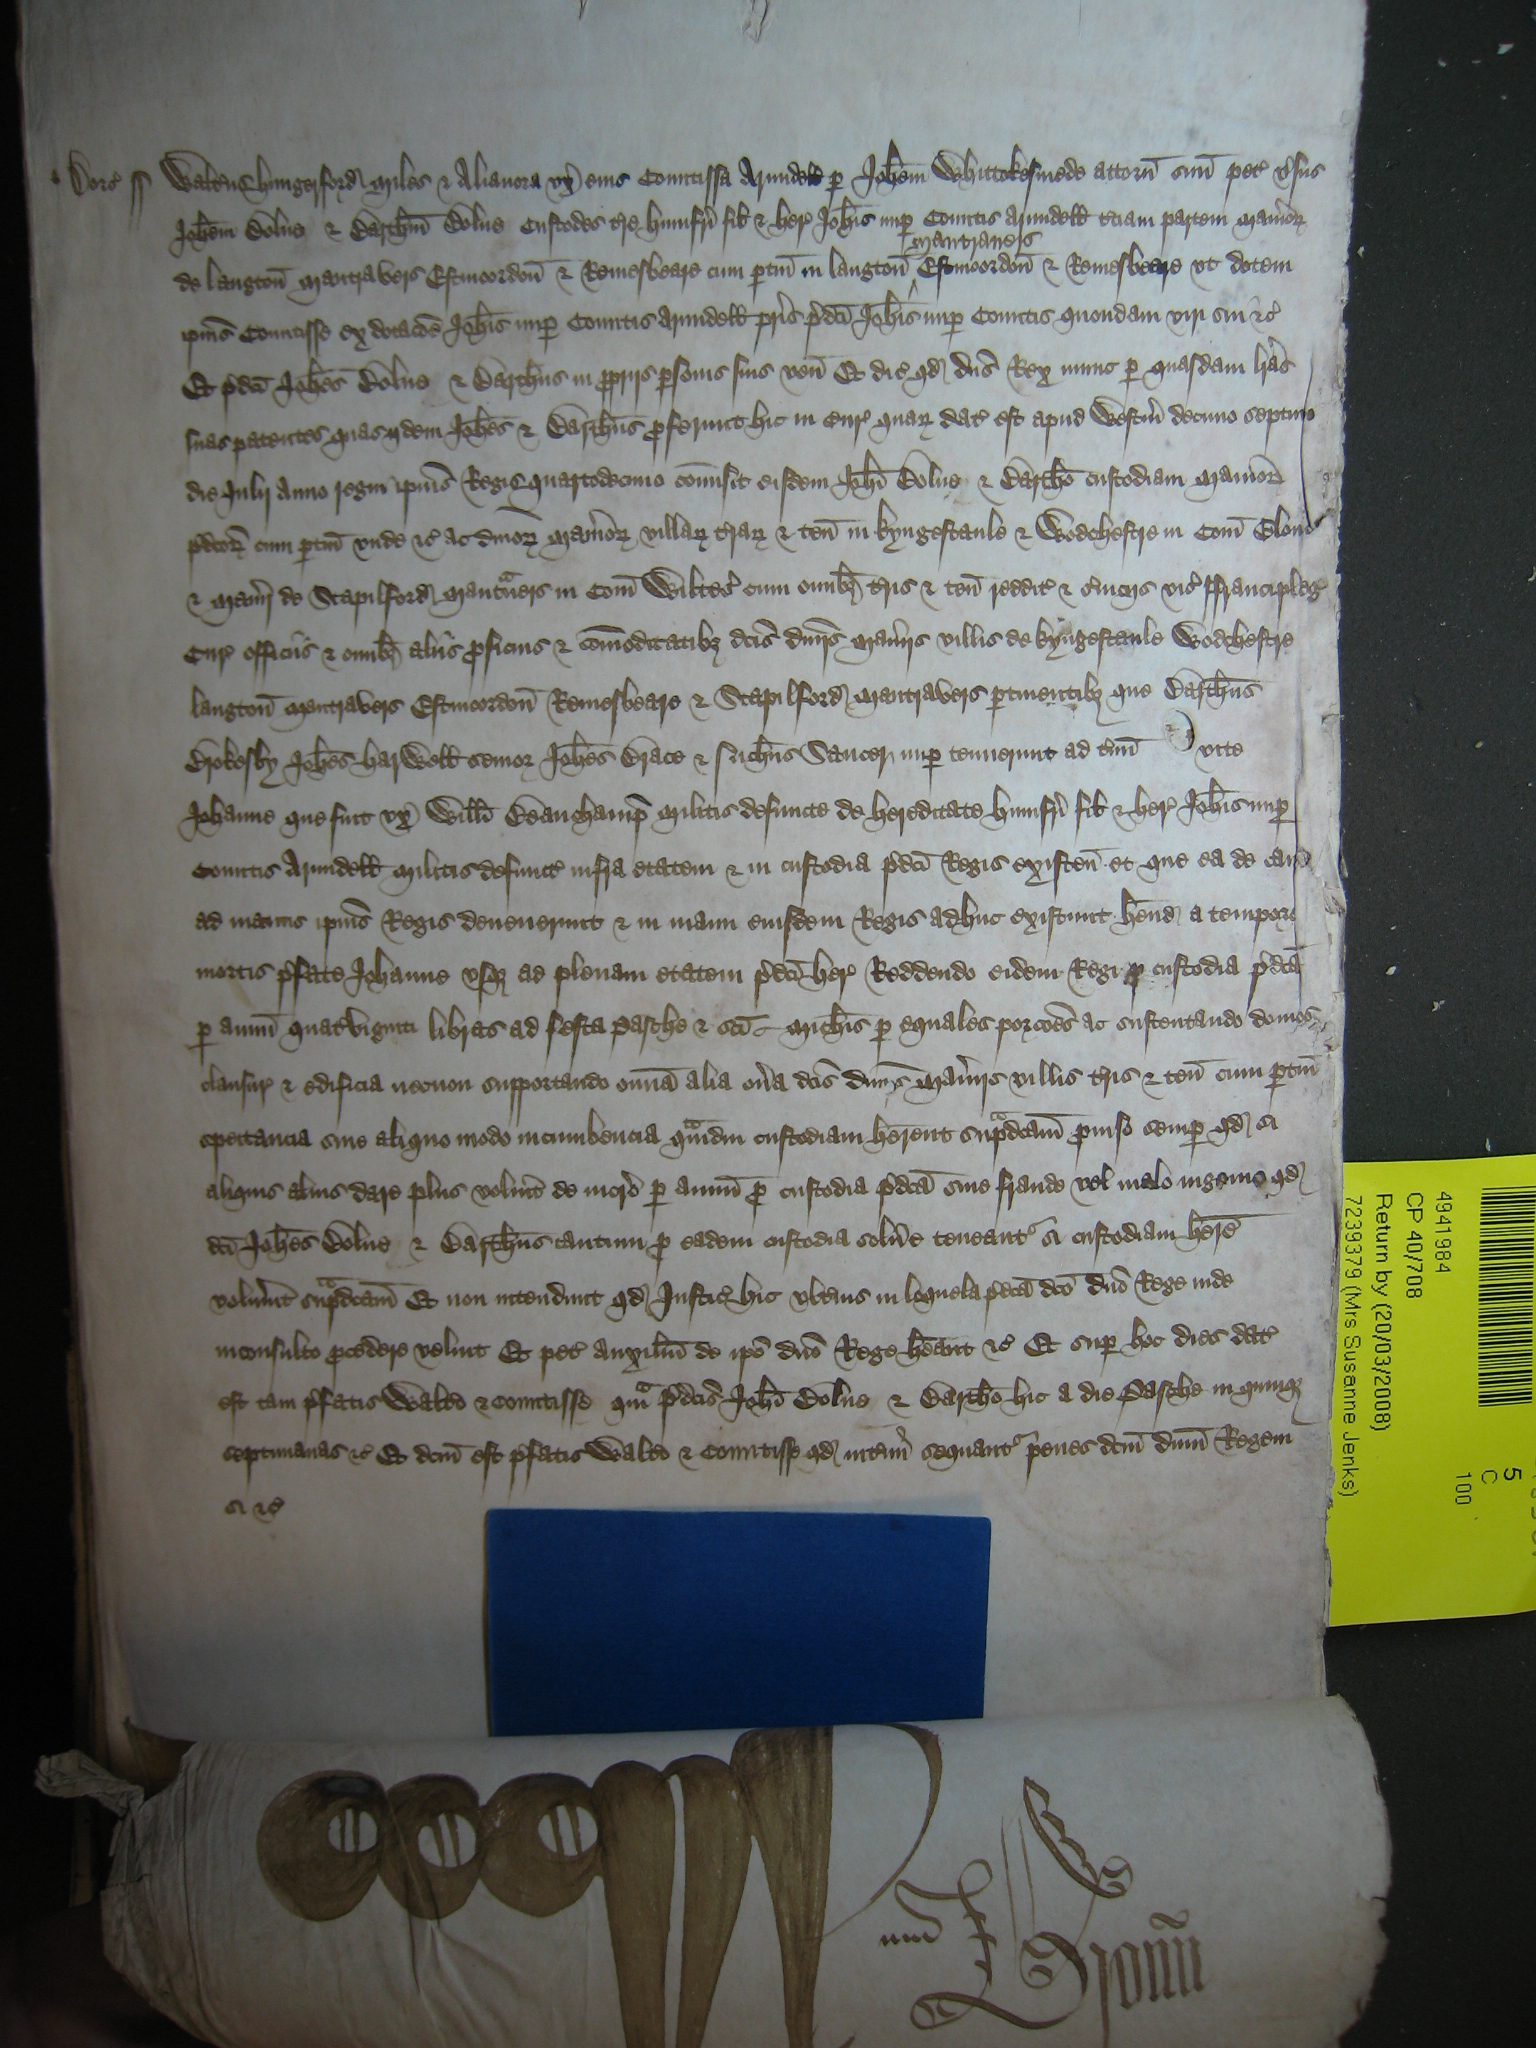 Dors̄ ss Walterus Hungerford miles & Alianora vx̄ eius Comitissa Arundell p̱ Joh̄em Whittokesmede attorn̄ suū pet̄ v̄sus
Joh̄em Bolne & Barth̄m Bolne Custodes t̄re Humfr̄i fil̄ & her̄ Joh̄is nup̱ Comitis Arundell t̄ciam partem Man̄iorꝝ
mautrauers
de Langton̄ Mautravers Estmoordon̄ & Remesbeare cum p̱tin̄ in Langton̄ Estmoordon̄ & Remesbeare vt dotem
ipīus Comitisse ex dotac̄oe Joh̄is nup̱ Comitis Arundell pr̄is p̄dc̄i Joh̄is nup̱ Comitis quondam viri sui &c̄
Et p̄dc̄i Joh̄es Bolne & Barth̄us in p̱prijs p̱sonis suis ven̄ Et dic̄ qd̄ dn̄s Rex nunc p̱ quasdam l̄ras
suas patentes quas ijdem Joh̄es & Barth̄us p̱ferunt hic in Cur̄ quarꝝ dat̄ est apud Westm̄ decimo septimo
die Julij Anno regni ip̄ius Regis quartodecimo com̄isit eisdem Joh̄i Bolne & Barth̄o custodiam Man̄iorꝝ
p̄dc̄orꝝ cum p̱tin̄ vnde &c̄ ac diu̅sorꝝ Man̄iorꝝ villarꝝ t̄rarꝝ & ten̄ in Kyngestanle & Wodchestre in Com̄ Glouc̄
& Man̄ij de Stapilford Mautrau̅s in Com̄ Wiltes̄ cum om̄ibꝫ t̄ris & ten̄ reddit̄ & s̄uicijs vis̄ ffrancipleḡ
Cur̄ officiis & om̄ibꝫ aliis p̱ficuis & com̄oditatibꝫ dc̄is diu̅sis Man̄ijs villis de Kyngestanle Wodchestre
Langton̄ Mautravers Estmoordon̄ Remesbeare & Stapilford Mautravers p̱tinentibꝫ que Barth̄us
Brokesby Joh̄es Harwell senior Joh̄es Brace & Nich̄us Saucer nup̱ tenuerunt ad t̄min̄ vite
Johanne que fuit vx̄ Will̄i Beauchamp̄ militis defuncte de hereditate Humfr̄i fil̄ & her̄ Joh̄is nup̱
Comitis Arundell militis defunct̄ infra etatem & in custodia p̄dc̄i Regis existen̄ et que ea de cā
ad manus ip̄ius Regis deuenerunt & in manu eiusdem Regis adhuc existunt h̄end a tempore
mortis p̄fate Johanne vsqꝫ ad plenam etatem p̄dc̄i her̄ Reddendo eidem Regi p̱ custodia p̄dc̄a
p̱ annū quat̄viginti libras ad festa Pasche & sc̄i Mich̄is p̱ equales porc̄oes ac sustentando domos
clausur̄ & edificia necnon supportando om̄ia alia on̄a dc̄is diu̅sis Man̄ijs villis t̄ris & ten̄ cum p̱tin̄
spectancia siue aliquo modo incumbencia qᵃmdiu custodiam h̄erent supᵃdc̄am p̱uiso semp̱ qd̄ si
aliquis alius dare plus volu̅it de incr̄o p̱ annū p̱ custodia p̄dc̄a sine fraude vel malo ingenio qd̄
dc̄i Joh̄es Bolne & Barth̄us tantum p̱ eadem custodia solu̅e teneant̄ si custodiam h̄ere
volu̅int supᵃdc̄am Et non intendunt qd̄ Justic̄ hic vlt̄ius in loquela p̄dc̄a dc̄o dn̄o Rege inde
inconsulto p̱cedere velint Et pet̄ auxiliū de ip̄o dn̄o Rege h̄eant &c̄ Et sup̱ hoc dies dat̄
est tam p̄fatis Walt̄o & Comitisse qᵃm p̄dc̄is Joh̄i Bolne & Barth̄o hic a die Pasche in quinqꝫ
septimanas &c̄ Et dc̄m est p̄fatis Walt̄o & Comitisse qd̄ int̄im sequant̄ penes dc̄m dn̄m Regem
si &c̄
4941984
CP 40/708
Return by (20/03/2008)
7239379 (Mrs Susanne Jenks)
5
C
100